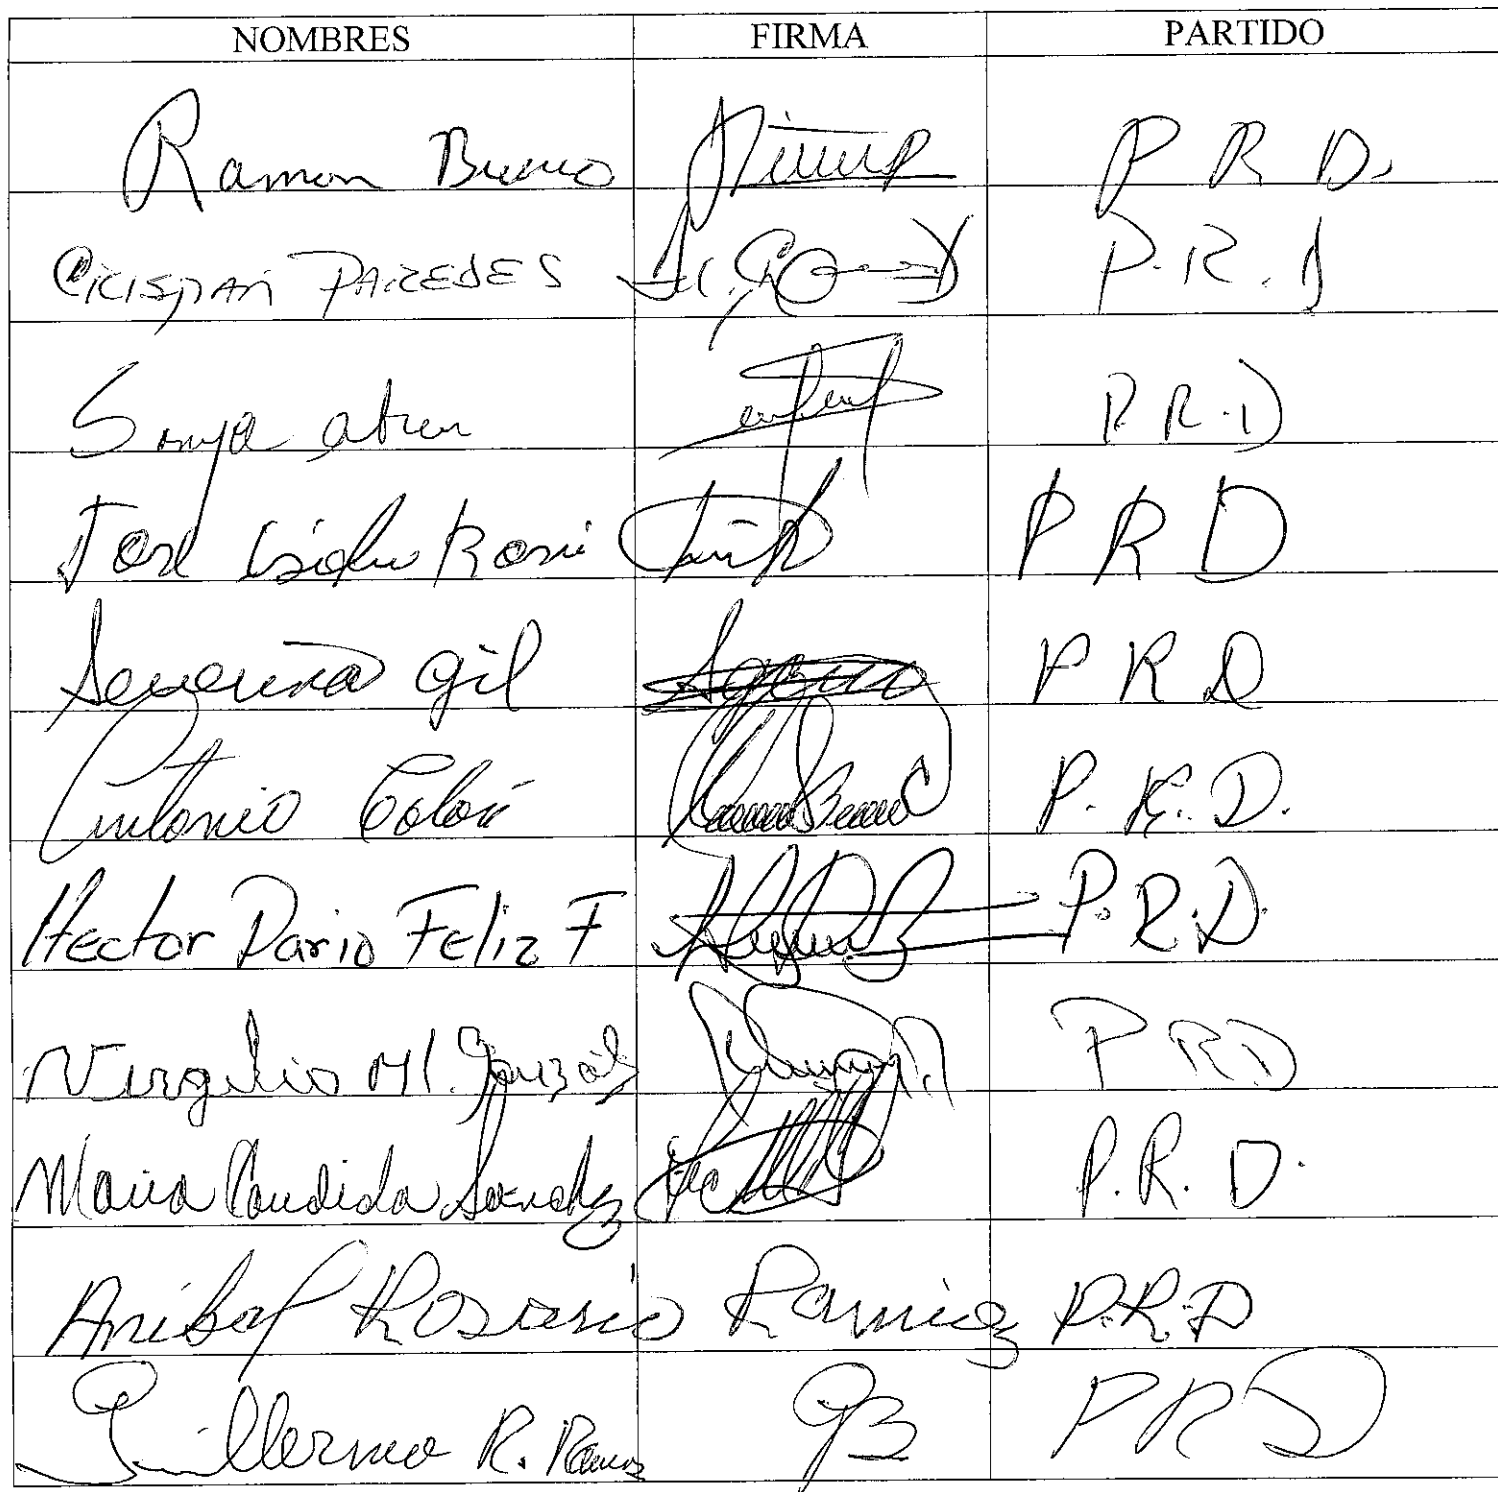 NOMBRES FIRMA PARTIDO
Ramon Bueno P R D.
CRISPIN PAREDES P.R.D
Sonya abreu P.R.D
José Isidro Rosari P R D
Severina Gil P R D
Antonio Colón P.R.D.
Hector Dario Feliz F P.R.D.
Virgilio Ml. González P R D
Maria Candida Sanchez P.R.D.
Anibal Rosario Ramirez P.R.D
Guillermo R. Ramirez P R D